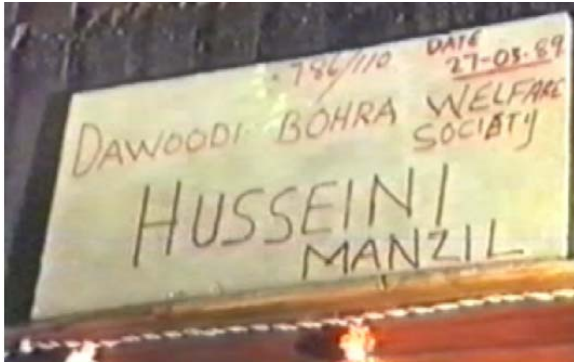 786/110 DATE
27-03-89
DAWOODI BOHRA WELFARE
SOCIATY
HUSSEINI
MANZIL